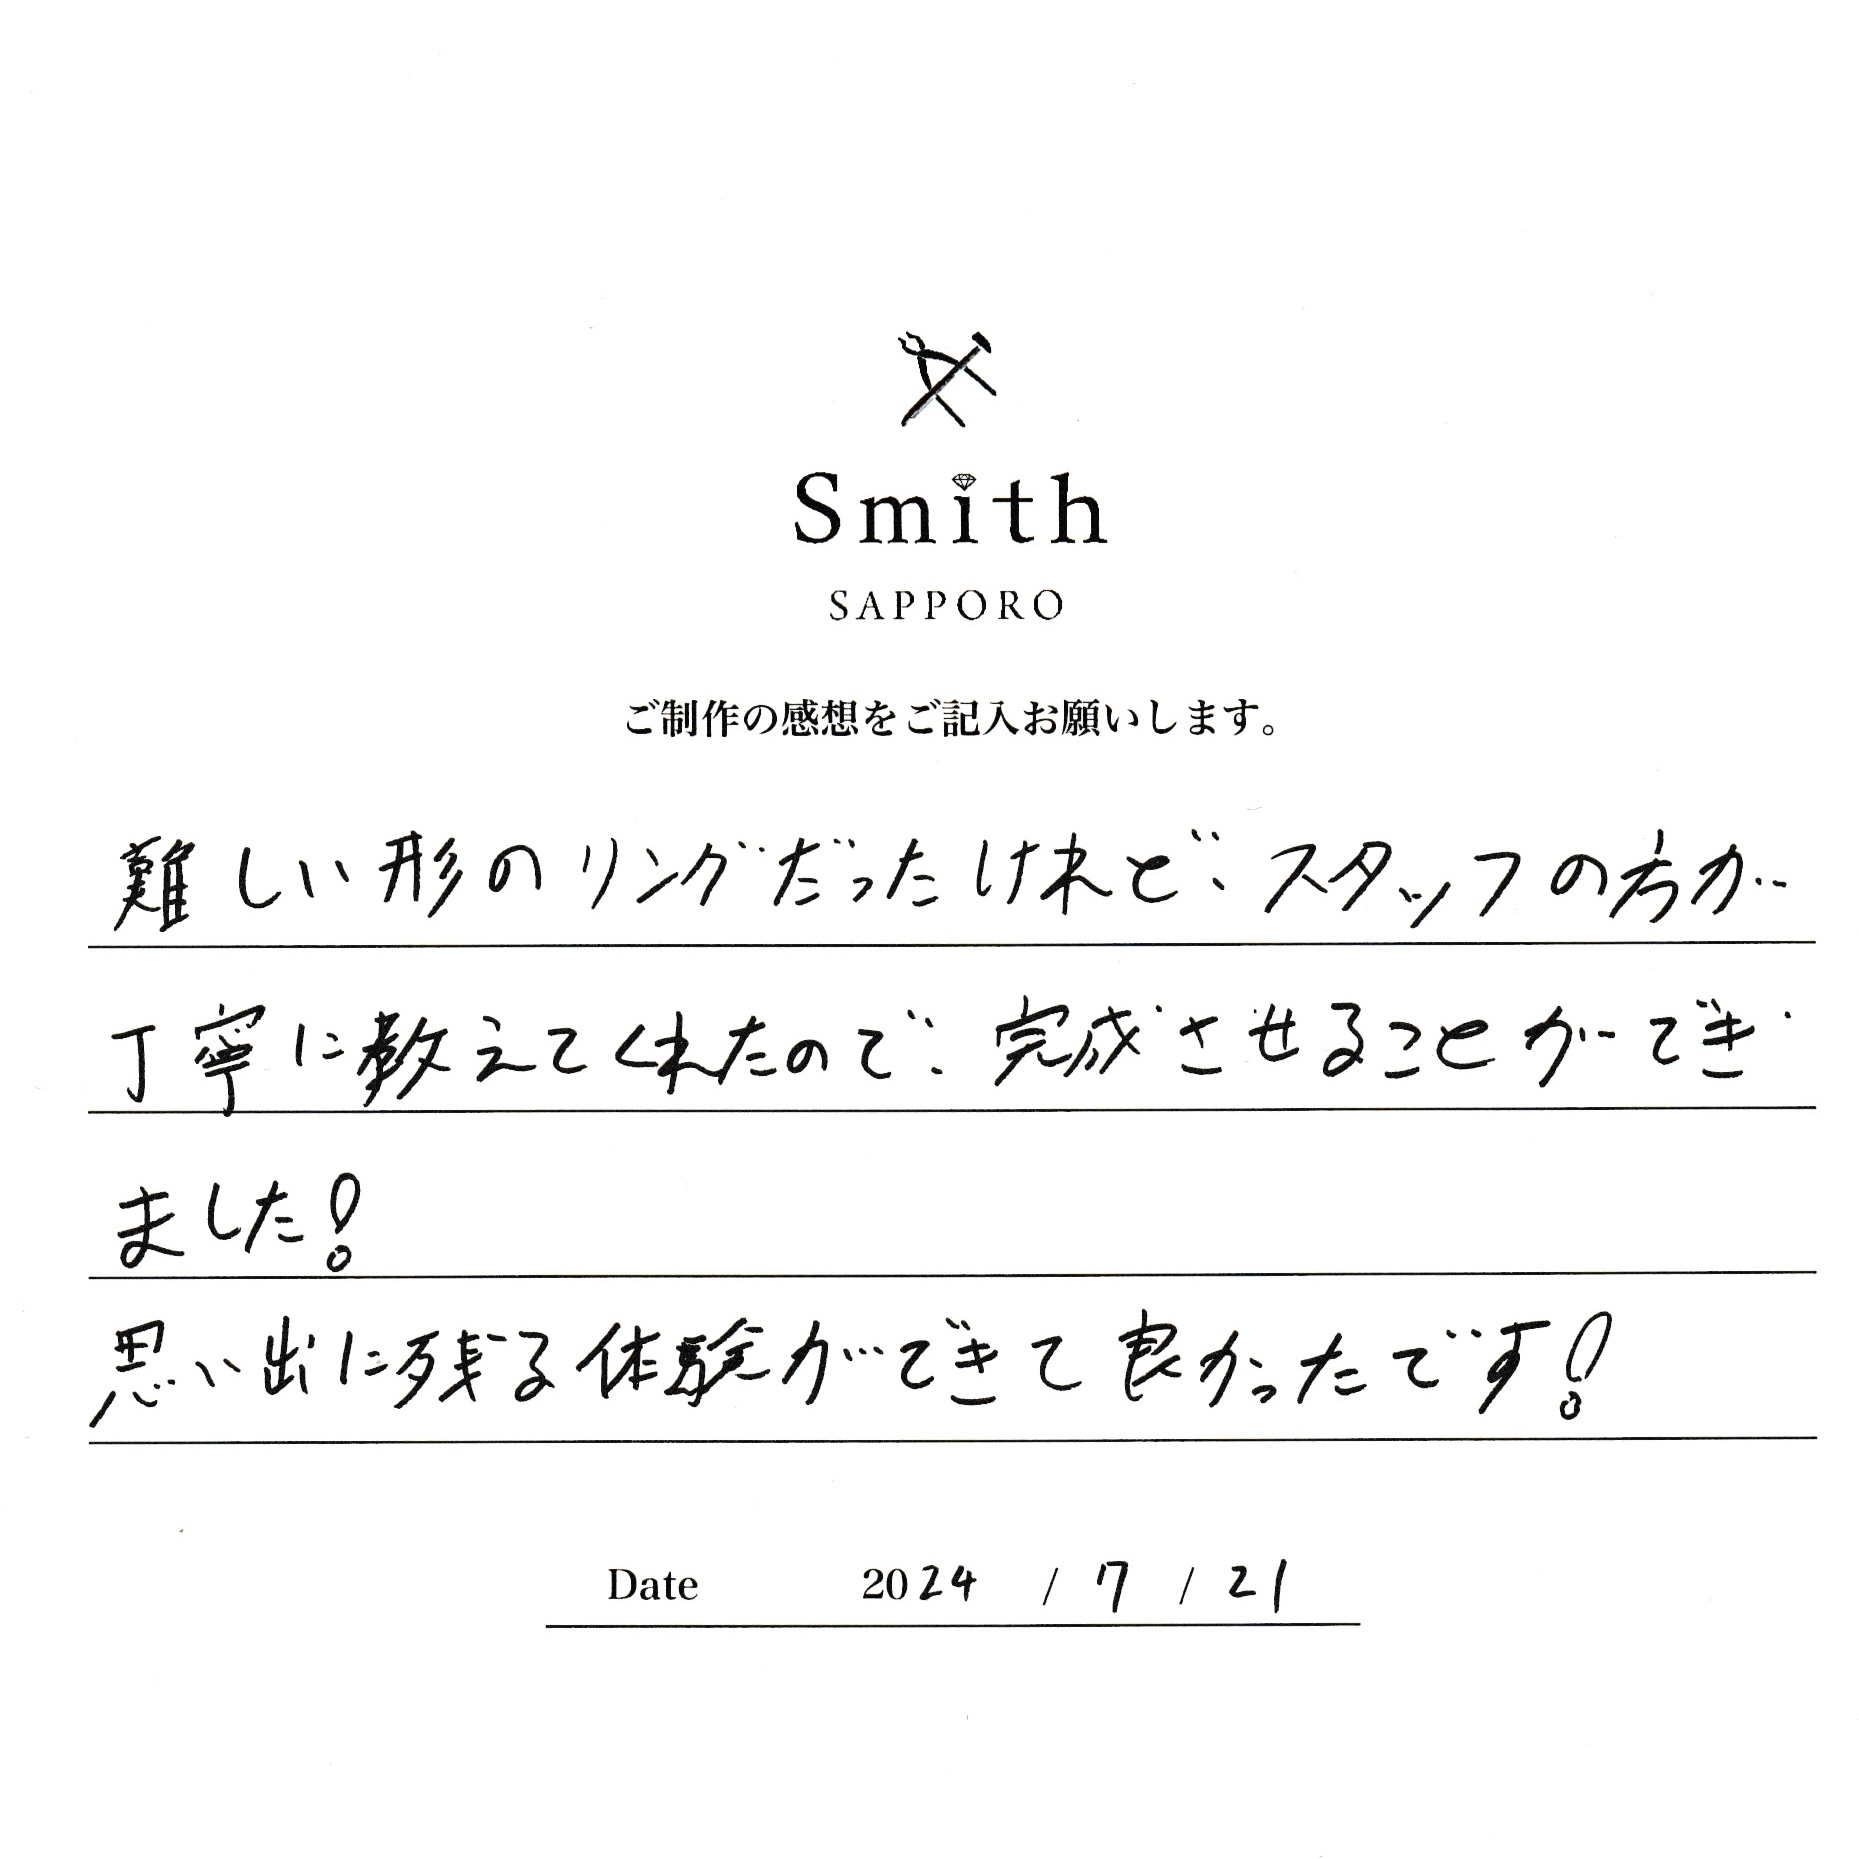 Smith
SAPPORO
ご制作の感想をご記入お願いします。
難しい形のリングだったけれど、スタッフの方が
丁寧に教えてくれたので、完成させることができ
ました!
思い出に残る体験ができて良かったです!
Date 2024 / 7 / 21